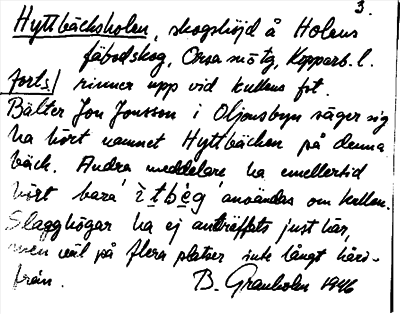 3.
Hyttbäcksholen, skogshöjd å Holens
fäbodskog, Orsa sn o tg, Kopparb. l.
forts/ rinner upp vid kullens fot.
Bälter Jon Jonsson i Oljonsbyn säger sig
ha hört namnet Hyttbäcken på denna
bäck. Andra meddelare ha emellertid
hört bara användas om kullen.
Slagghögar ha ej anträffats just här,
men väl på flera platser inte långt häri-
från. B. Granholm 1946